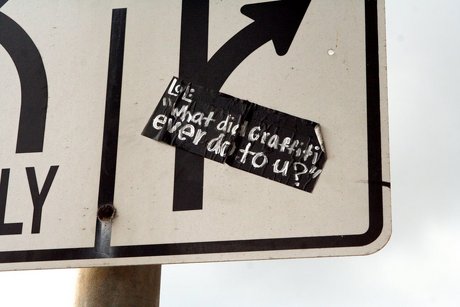 LOL:
"what did Graffiti
ever do to u?"
LY